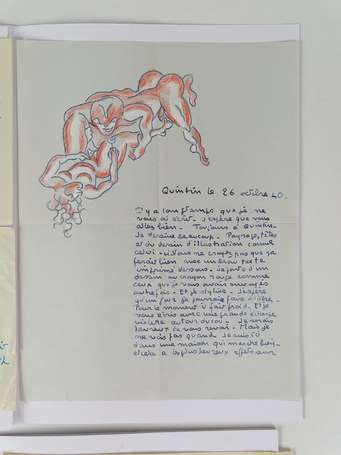 Quintin le 26 octobre 40.
Il y a longtemps que je ne
vous ai écrit. J'espère que vous
allez bien. Toujours à Quintin.
Je dessine beaucoup. Paysage, têtes
et du dessin d'illustration comme
celui-ci. Vous ne croyez pas que ça
ferait bien avec un beau texte
imprimé dessous. Je sors d'un
dessin au crayon rouge comme
ceux que je vous avais envoyés
autrefois. Et je stylise. J'espère
qu'un jour je pourrais faire
Pour le moment il fait froid. Et je
vous écris avec une grande écharpe
violette autour du cou. Je serais
heureux de vous revoir. Mais je
ne sais pas quand. Je suis ici
dans une maison qui marche bien
et cela a les plus heureux effets sur